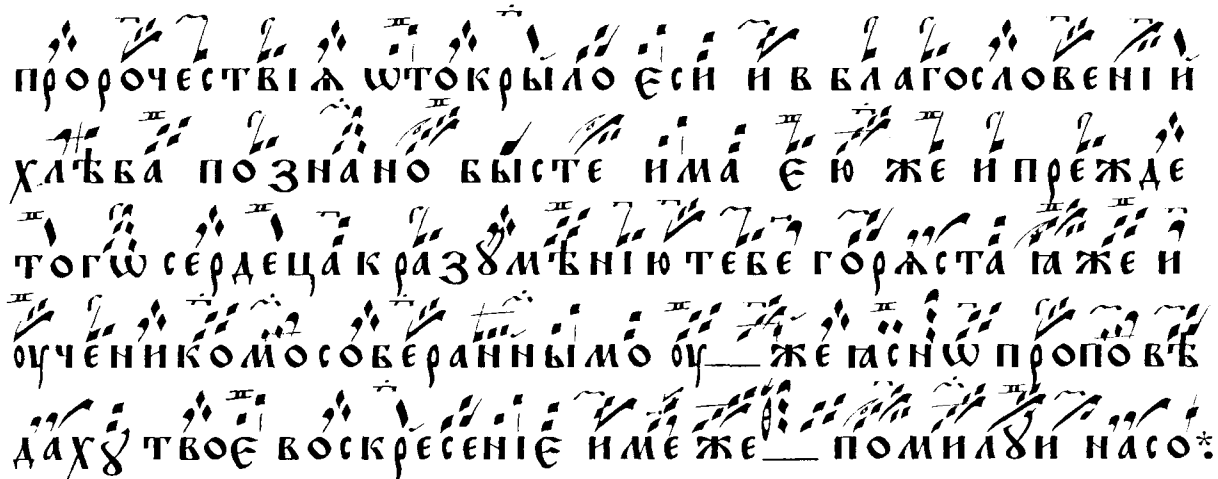 пророчествїѧ ѿтокрыло єси и в благословенїй
хлѣба познано бысте има єюже и прежде
тогѡ сердеца к разꙋмѣнїю тебе горѧста ꙗже и
оученикомособераннымо оу__же ꙗснѡ проповѣ
дахꙋ твоє воскресенїє имеже__помилꙋи насо*: